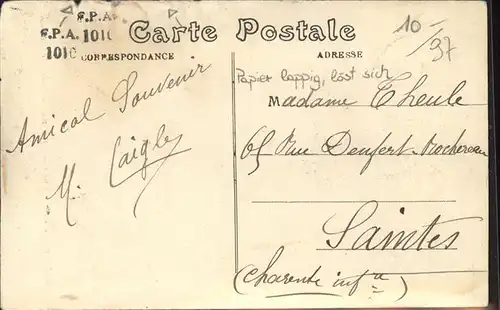 F.P.A.
F.P.A. 1010
1010
Carte Postale
CORRESPONDANCE
ADRESSE
10/37
Papier lappig, löst sich
Amical Souvenir
M. Laigle
Madame Theule
65 Rue Denfert-Rochereau
Saintes
(Charente infre)